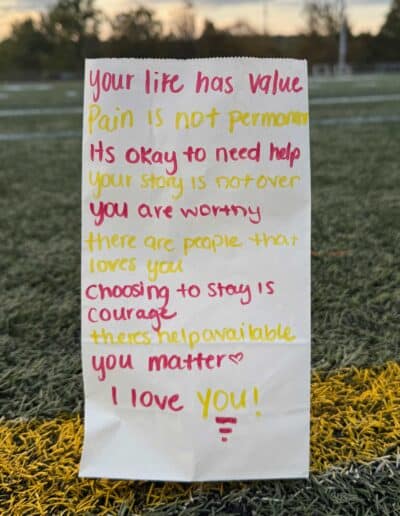 your life has value
Pain is not permanent
Its okay to need help
Your story is not over
you are worthy
there are people that
loves you
Choosing to stay is
courage
theres help available
you matter♡
I love you!